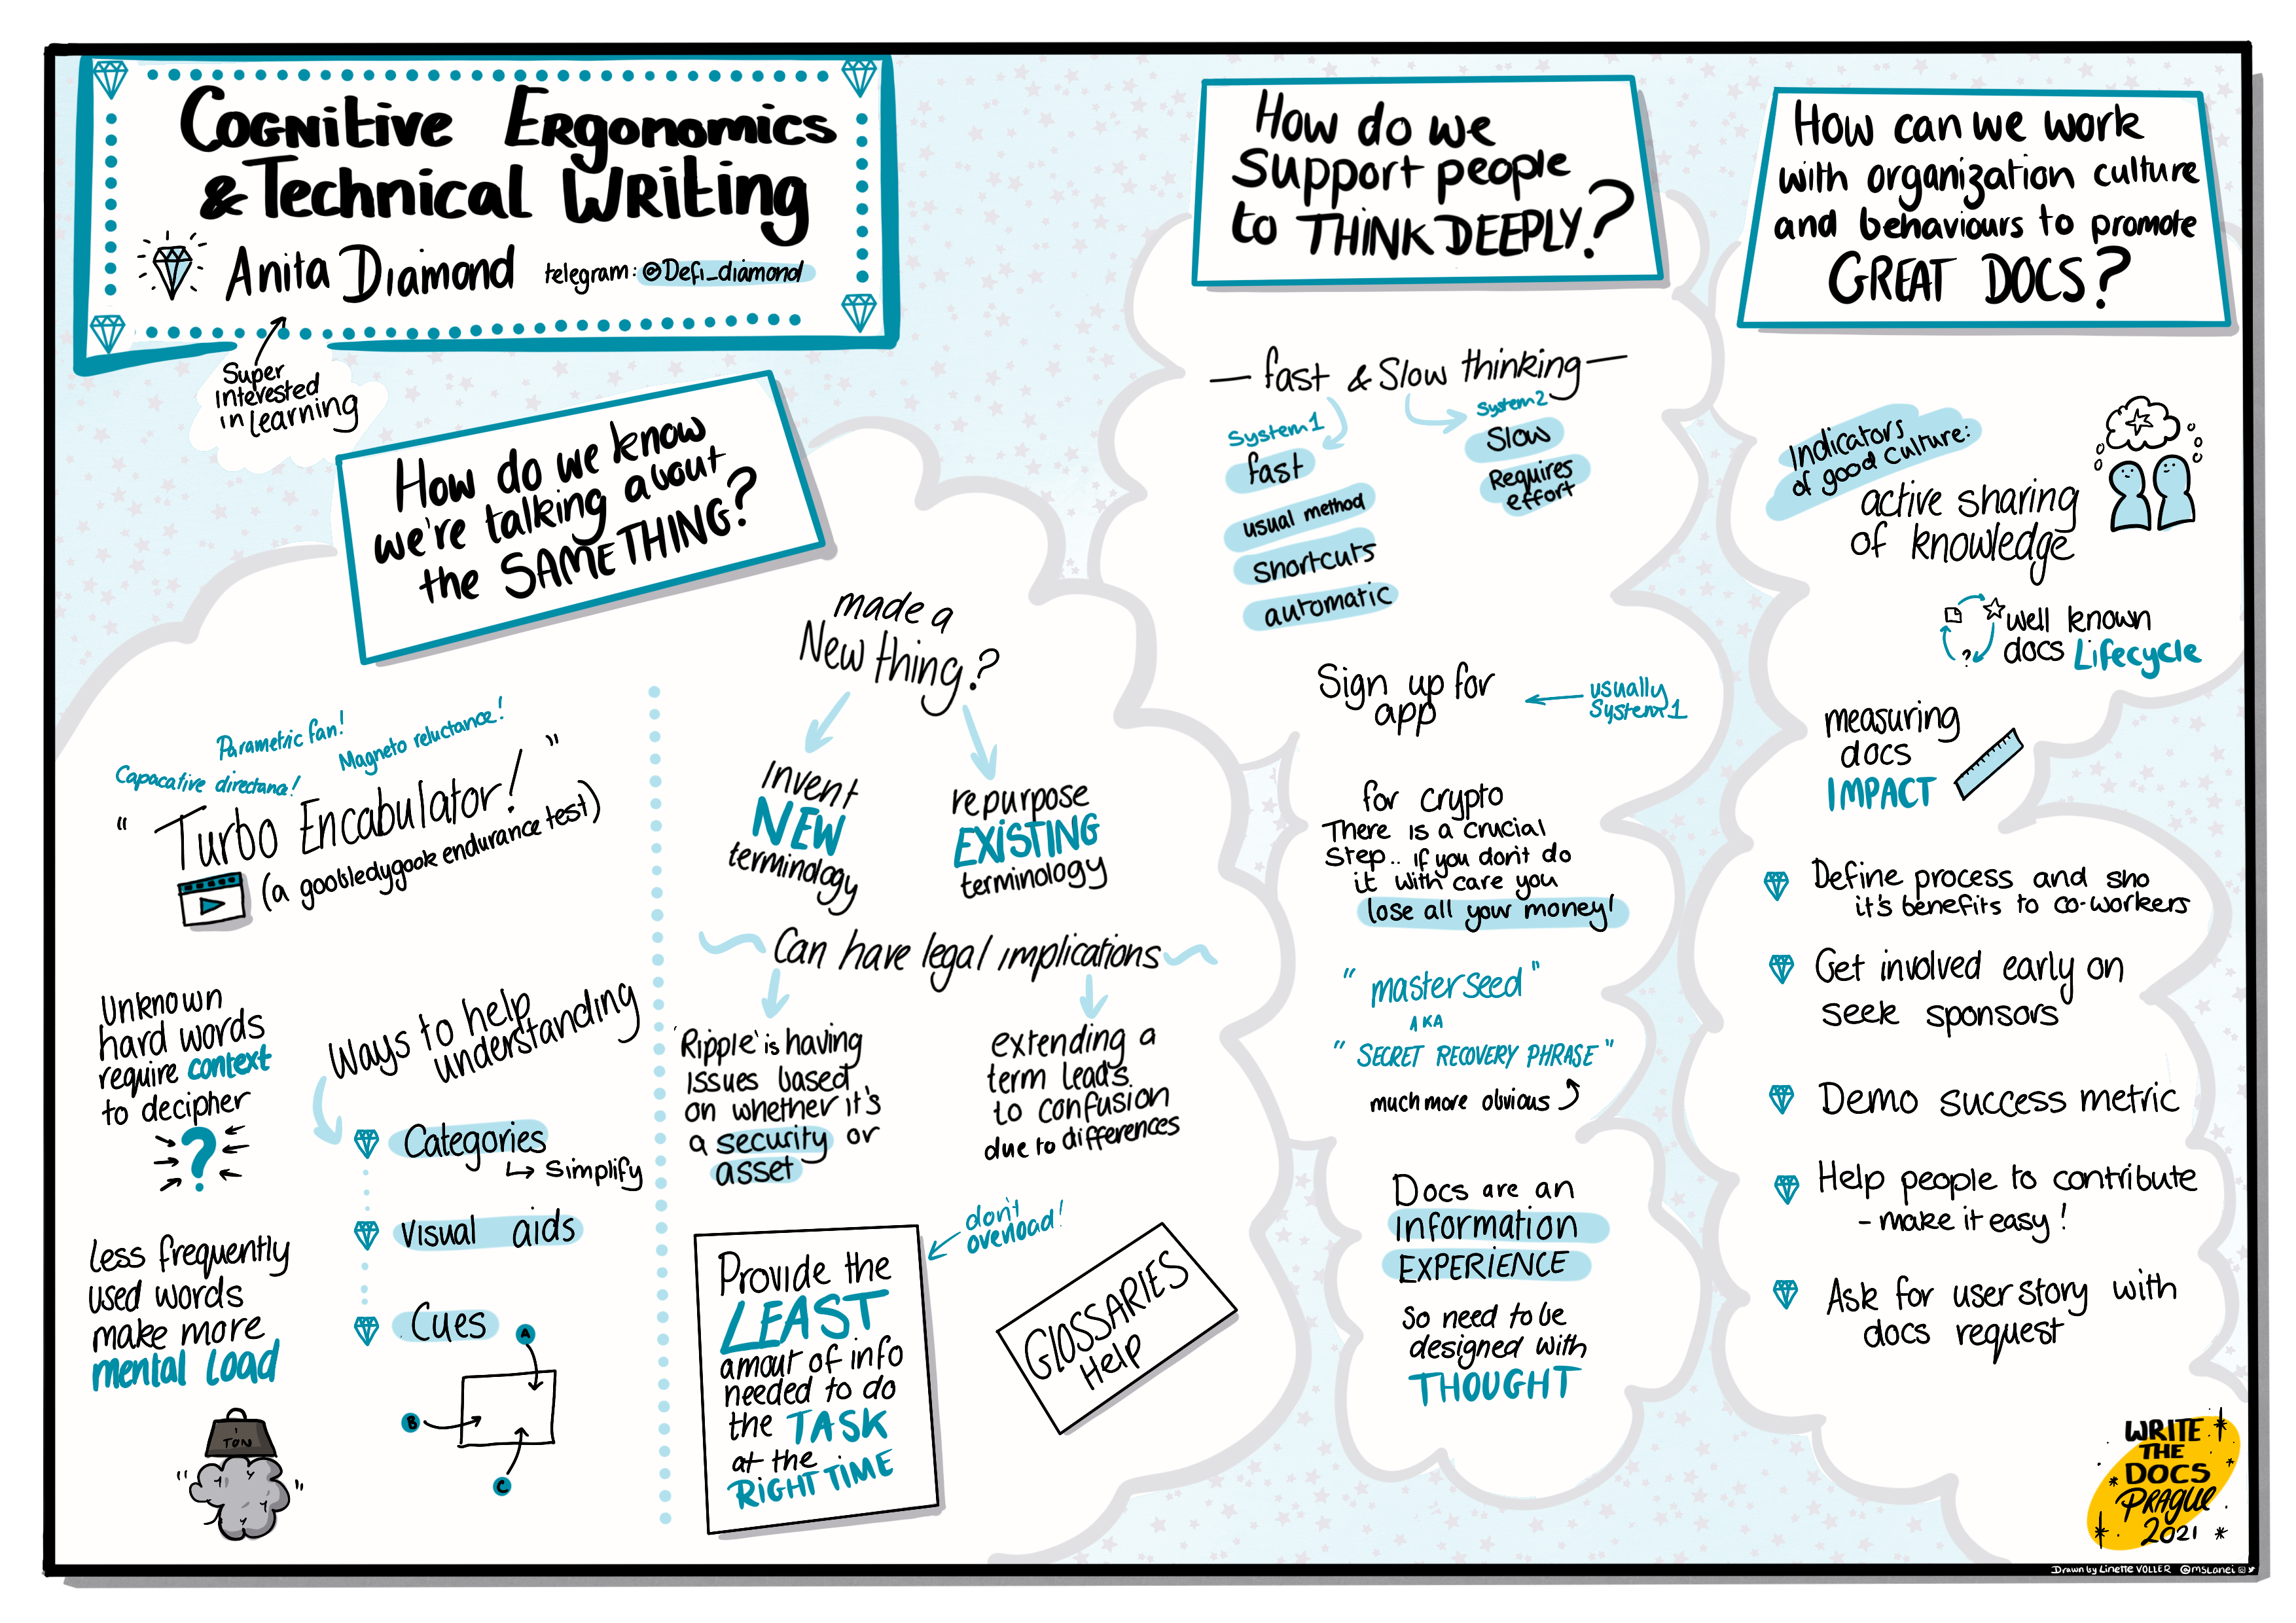 Cognitive Ergonomics
& Technical Writing
Anita Diamond telegram: @Defi_diamond
Super
interested
in learning
How do we know
we're talking about
the SAME THING?
Parametric fan!
Magneto reluctance!
Capacative directance!
" Turbo Encabulator! "
(a goobledygook endurance test)
Unknown
hard words
require context
to decipher
?
Less frequently
used words
make more
mental load
1
TON
Ways to help
understanding
Categories
↳ Simplify
Visual aids
Cues
A
B
C
made a
New thing?
invent
NEW
terminology
repurpose
EXISTING
terminology
Can have legal implications
'Ripple' is having
issues based
on whether it's
a security or
asset
extending a
term leads
to confusion
due to differences
don't
overload!
Provide the
LEAST
amout of info
needed to do
the TASK
at the
RIGHT TIME
GLOSSARIES
Help
How do we
support people
to THINK DEEPLY?
— fast & Slow thinking —
System 1
fast
usual method
shortcuts
automatic
System 2
Slow
Requires
effort
Sign up for
app
usually
System 1
for crypto
There is a crucial
Step.. if you don't do
it with care you
lose all your money!
"master seed"
AKA
"SECRET RECOVERY PHRASE"
much more obvious
Docs are an
information
EXPERIENCE
So need to be
designed with
THOUGHT
How can we work
with organization culture
and behaviours to promote
GREAT DOCS?
Indicators
of good culture:
active sharing
of knowledge
?
well known
docs Lifecycle
measuring
docs
IMPACT
Define process and sho
it's benefits to co-workers
Get involved early on
seek sponsors
Demo success metric
Help people to contribute
- make it easy!
Ask for user story with
docs request
WRITE
THE
DOCS
PRAGUE
2021
Drawn by Linette VOLLER @mslanei